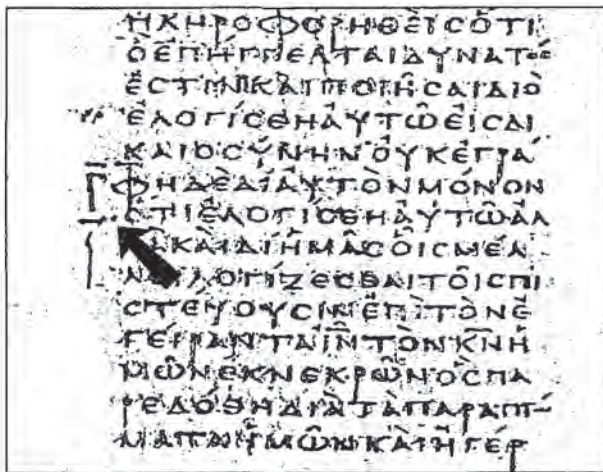 ΠΛΗΡΟΦΟΡΗΘΕὶϹὅΤΙ
ὃἐΠΉΓΓΕΛΤΑΙΔΥΝΑΤὸϹ
ἐϹΤΙΝΚΑὶΠΟΙῆϹΑΙΔΙὸ
ἐΛΟΓΊϹΘΗΑὐΤῶΕἰϹΔΙ
ΚΑΙΟϹΎΝΗΝΟὐΚἐΓΡΆ
ΦΗΔὲΔΙΑὐΤὸΝΜΌΝΟΝ
ὅΤΙἐΛΟΓΊϹΘΗΑὐΤῶἀΛ
ΛὰΚΑὶΔΙἡΜᾶϹΟἷϹΜΈΛ
ΛΕΙΛΟΓΊΖΕϹΘΑΙΤΟῖϹΠΙ
ϹΤΕΎΟΥϹΙΝἐΠὶΤὸΝἐ
ΓΕΊΡΑΝΤΑΙ̅Ν̅ΤὸΝΚ̅Ν̅ἡ
ΜῶΝἐΚΝΕΚΡῶΝὃϹΠΑ
ΡΕΔΌΘΗΔΙὰΤὰΠΑΡΑΠΤΏ
ΜΑΤΑἡΜῶΝΚΑὶἠΓΈΡ